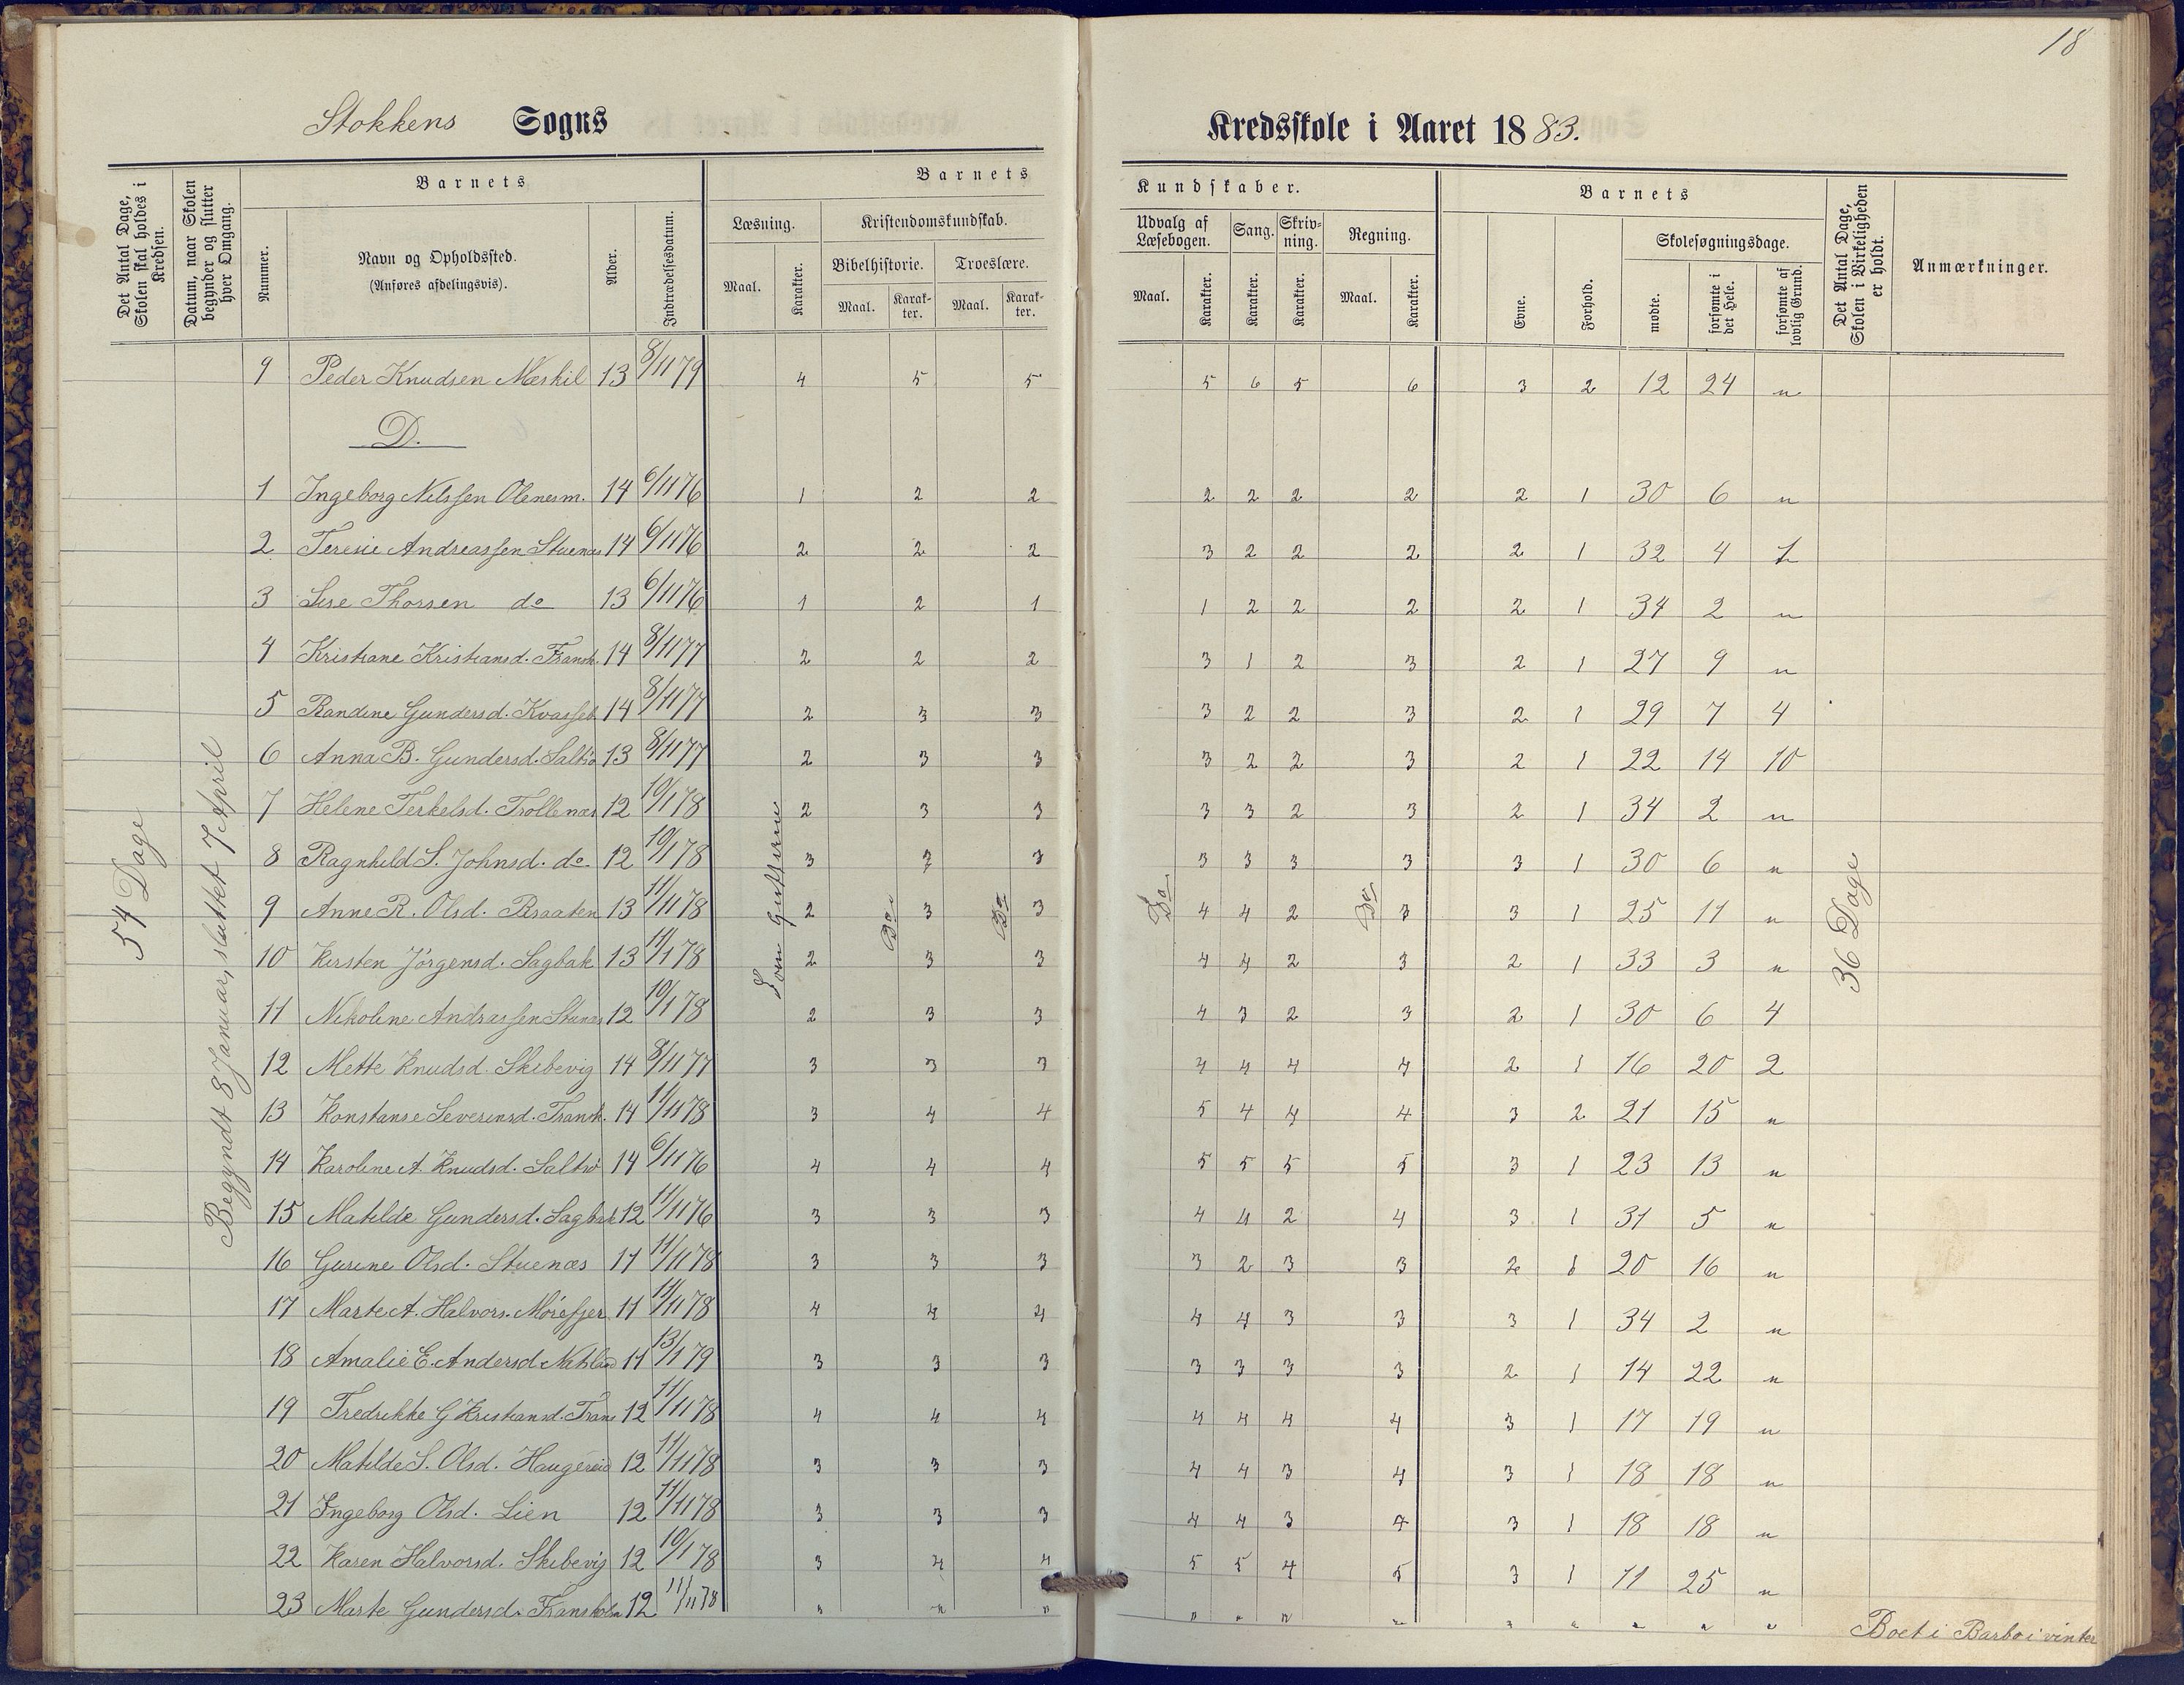 18
Stokkens Sogns
Kredsskole i Aaret 1883.
Det Antal Dage, Skolen skal holdes i Kredsen.
Datum, naar Skolen begynder og slutter hver Omgang.
Barnets
Nummer.
Navn og Opholdssted.
(Anføres afdelingsvis).
Alder.
Indtrædelsesdatum.
Barnets
Læsning.
Maal.
Karakter.
Kristendomskundskab.
Bibelhistorie.
Maal.
Karakter.
Troeslære.
Maal.
Karakter.
Kundskaber.
Udvalg af Læsebogen.
Maal.
Karakter.
Sang.
Karakter.
Skrivning.
Karakter.
Regning.
Maal.
Karakter.
Barnets
Evne.
Forhold.
Skolesøgningsdage.
mødte.
forsømte i det Hele.
forsømte af lovlig Grund.
Det Antal Dage, Skolen i Virkeligheden er holdt.
Anmærkninger.
54 Dage
Begyndt 8 Januar, sluttet 7 April
Som Gutterne
Do
Do
Do
Do
36 Dage
9 Peder Knudsen Næskil 13 8/11 79 4 5 5 5 6 5 6 3 2 12 24 "
D.
1 Ingeborg Nilssen Olenesm. 14 6/11 76 1 2 2 2 2 2 2 2 1 30 6 "
2 Teresie Andreassen Stuenæs 14 6/11 76 2 2 2 3 2 2 2 2 1 32 4 1
3 Lise Thorsen do 13 6/11 76 1 2 1 1 2 2 2 2 1 34 2 "
4 Kristiane Kristiansd. Fransh. 14 8/11 77 2 2 2 3 1 2 3 2 1 27 9 "
5 Randine Gundersd. Kvasseb. 14 8/11 77 2 3 3 3 2 2 3 2 1 29 7 4
6 Anna B. Gundersd. Saltrø 13 8/11 77 2 3 3 3 2 2 3 2 1 22 14 10
7 Helene Terkelsd. Trollenæs 12 10/1 78 2 3 3 3 3 2 3 2 1 34 2 "
8 Ragnhild S. Johnsd. do 12 10/1 78 3 3 3 3 3 3 3 3 1 30 6 "
9 Anne R. Olsd. Braaten 13 11/11 78 2 3 3 4 4 2 3 3 1 25 11 "
10 Kirsten Jörgensd. Sagbak 13 11/1 78 2 3 3 4 4 2 3 2 1 33 3 "
11 Nikoline Andreassen Stuenæs 12 10/1 78 2 3 3 4 3 2 3 2 1 30 6 4
12 Mette Knudsd. Skibevig 14 8/11 77 3 3 3 4 4 4 4 2 1 16 20 2
13 Konstanse Severinsd. Fransh. 14 11/11 78 3 4 4 5 4 4 4 3 2 21 15 "
14 Karoline A. Knudsd. Saltrø 14 6/11 76 4 4 4 5 5 5 5 3 1 23 13 "
15 Matilde Gundersd. Sagbak 12 11/11 76 3 3 3 4 4 2 4 3 1 31 5 "
16 Gurine Olsd. Stuenæs 11 11/11 78 3 3 3 3 2 3 3 2 1 20 16 "
17 Marte A. Halvors. Mörefjer 11 11/11 78 4 4 4 4 4 3 3 3 1 34 2 "
18 Amalie E. Andersd. 11 13/1 79 3 3 3 3 3 3 3 2 1 14 22 "
19 Fredrikke G Kristiansd. Frans 12 11/11 78 4 4 4 4 4 4 4 3 1 17 19 "
20 Matilde S. Olsd. Haugereid 12 11/11 78 3 3 3 4 4 3 4 3 1 18 18 "
21 Ingeborg Olsd. Lien 12 11/11 78 3 3 3 4 4 3 4 3 1 18 18 "
22 Karen Halvorsd. Skibevig 12 10/1 78 3 4 4 5 5 4 5 3 1 11 25 "
23 Marte Gundersd. Fransholm 12 11/11 78 " " " " " " " " " " " " Boet i Barbo i vinter